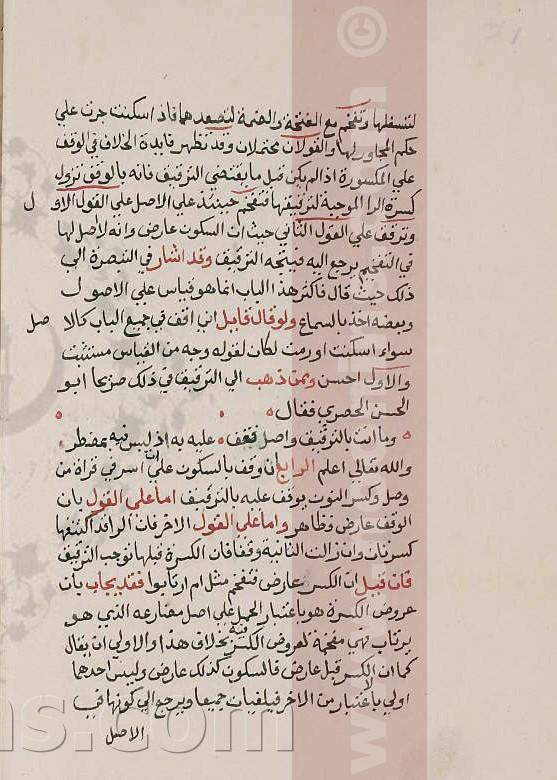 لتسفلها وتفخم مع الفتحة والضمة لتصعدهما فاذا اسكنت جرت علي
حكم المجاور لها والقولان محتملان وقد تظهر فايدة الخلاف في الوقف
علي المكسورة اذا لم يكن قبل ما يقتضي الترقيق فانه بالوقف تزول
كسرة الرا الموجبة لترقيقها فتفخم حينئذ علي الاصل علي القول الاو ل
وترقق علي القول الثاني حيث ان السكون عارض وانه لا صل لها
في التفخيم يرجع اليه فيتجه الترقيق وقد اشار في التبصرة الي
ذلك حيث قال فاكثر هذا الباب انما هو قياس علي الاصول
وبعضه اخذ بالسماع ولو قال قايل اني اقف في جميع الباب كالا صل
سواء اسكنت او رمت لكان لقوله وجه من القياس مستثبت
والاول احسن وممن ذهب الي الترقيق في ذلك صريحا ابو
الحسن الحصري فقال
وما انت بالترقيق واصله فقف عليه به اذ ليس فيه بمضطر
والله تعالي اعلم الرابع ان وقف بالسكون علي ان اسر في قراة من
وصل وكسر النون يوقف عليه بالترقيق اما علي القول بان
الوقف عارض وظاهر واما علي القول الاخر فان الرا قد اكتنفها
كسرتان وان زالت الثانية وقفا فان الكسرة قبلها توجب الترقيق
فان قيل ان الكسر عارض فتفخم مثل ام ارتابوا فقد يجاب بان
عروض الكسرة هو باعتبار الحمل علي اصل مضارعه الذي هو
يرتاب فهي مفخمة لعروض الكسر فيه بخلاف هذا والاولي ان يقال
كما ان الكسر قبل عارض فالسكون كذلك عارض وليس احدهما
اولي بالاعتبار من الاخر فيلغيان جميعا ويرجع الي كونها في
الاصل